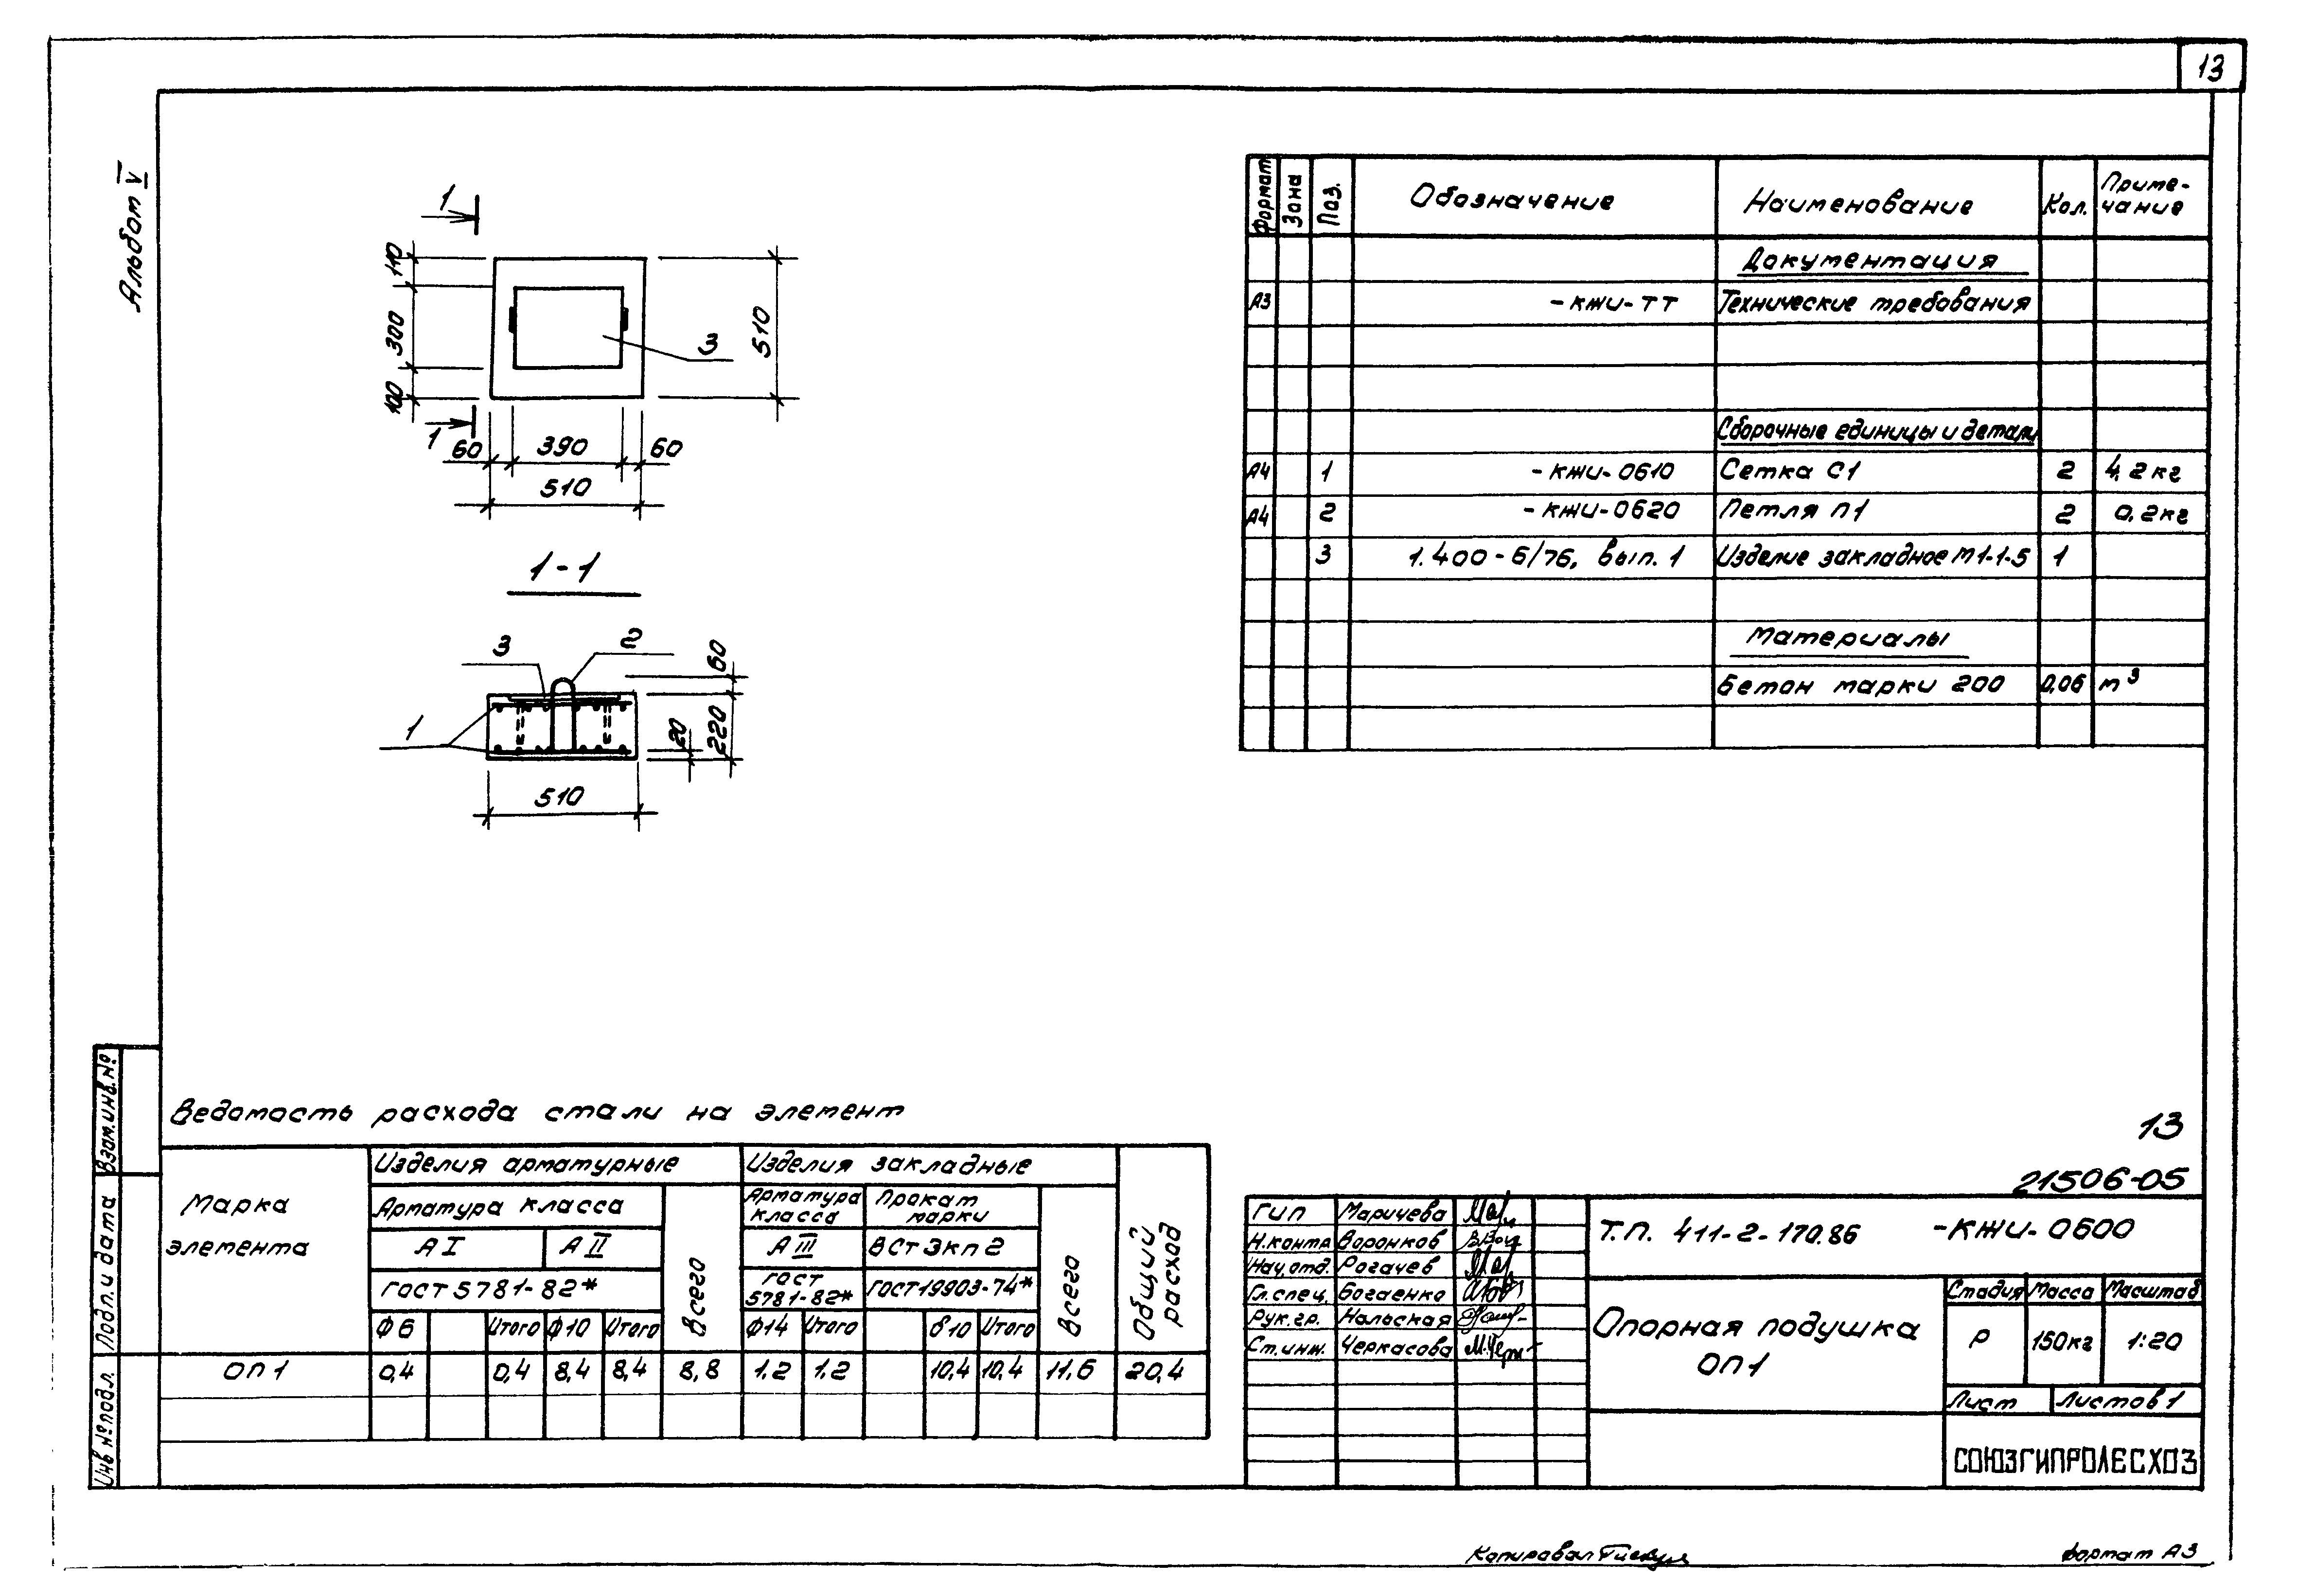 13
Альбом V
1
110
300
100
510
3
1
60 390 60
510
1-1
3 2
60
1
20
220
510
Формат Зона Поз. Обозначение Наименование Кол. Приме-
чание
Документация
А3 -КЖИ-ТТ Технические требования
Сборочные единицы и детали
А4 1 -КЖИ-0610 Сетка С1 2 4,2кг
А4 2 -КЖИ-0620 Петля П1 2 0,2кг
3 1.400-6/76, вып. 1 Изделие закладное М1-1-5 1
Материалы
Бетон марки 200 0,06 м³
Ведомость расхода стали на элемент
Марка
элемента
Изделия арматурные Изделия закладные
Общий
расход
Арматура класса
Всего
Арматура
класса
Прокат
марки
Всего
А I А II А III ВСт3кп2
ГОСТ 5781-82*
ГОСТ
5781-82*
ГОСТ 19903-74*
Ф6 Итого Ф10 Итого Ф14 Итого δ10 Итого
ОП1 0,4 0,4 8,4 8,4 8,8 1,2 1,2 10,4 10,4 11,6 20,4
13
21506-05
ГИП Маричева
Н.контр Воронков
Нач.отд. Рогачев
Гл.спец. Богаенко
Рук.гр. Нальская
Ст.инж. Черкасова
Т.П. 411-2-170.86 -КЖИ-0600
Опорная подушка
ОП1
Стадия Масса Масштаб
Р 150кг 1:20
Лист Листов 1
СОЮЗГИПРОЛЕСХОЗ
Взам.инв.№
Подп. и дата
Инв №подл.
Копировал
Формат А3